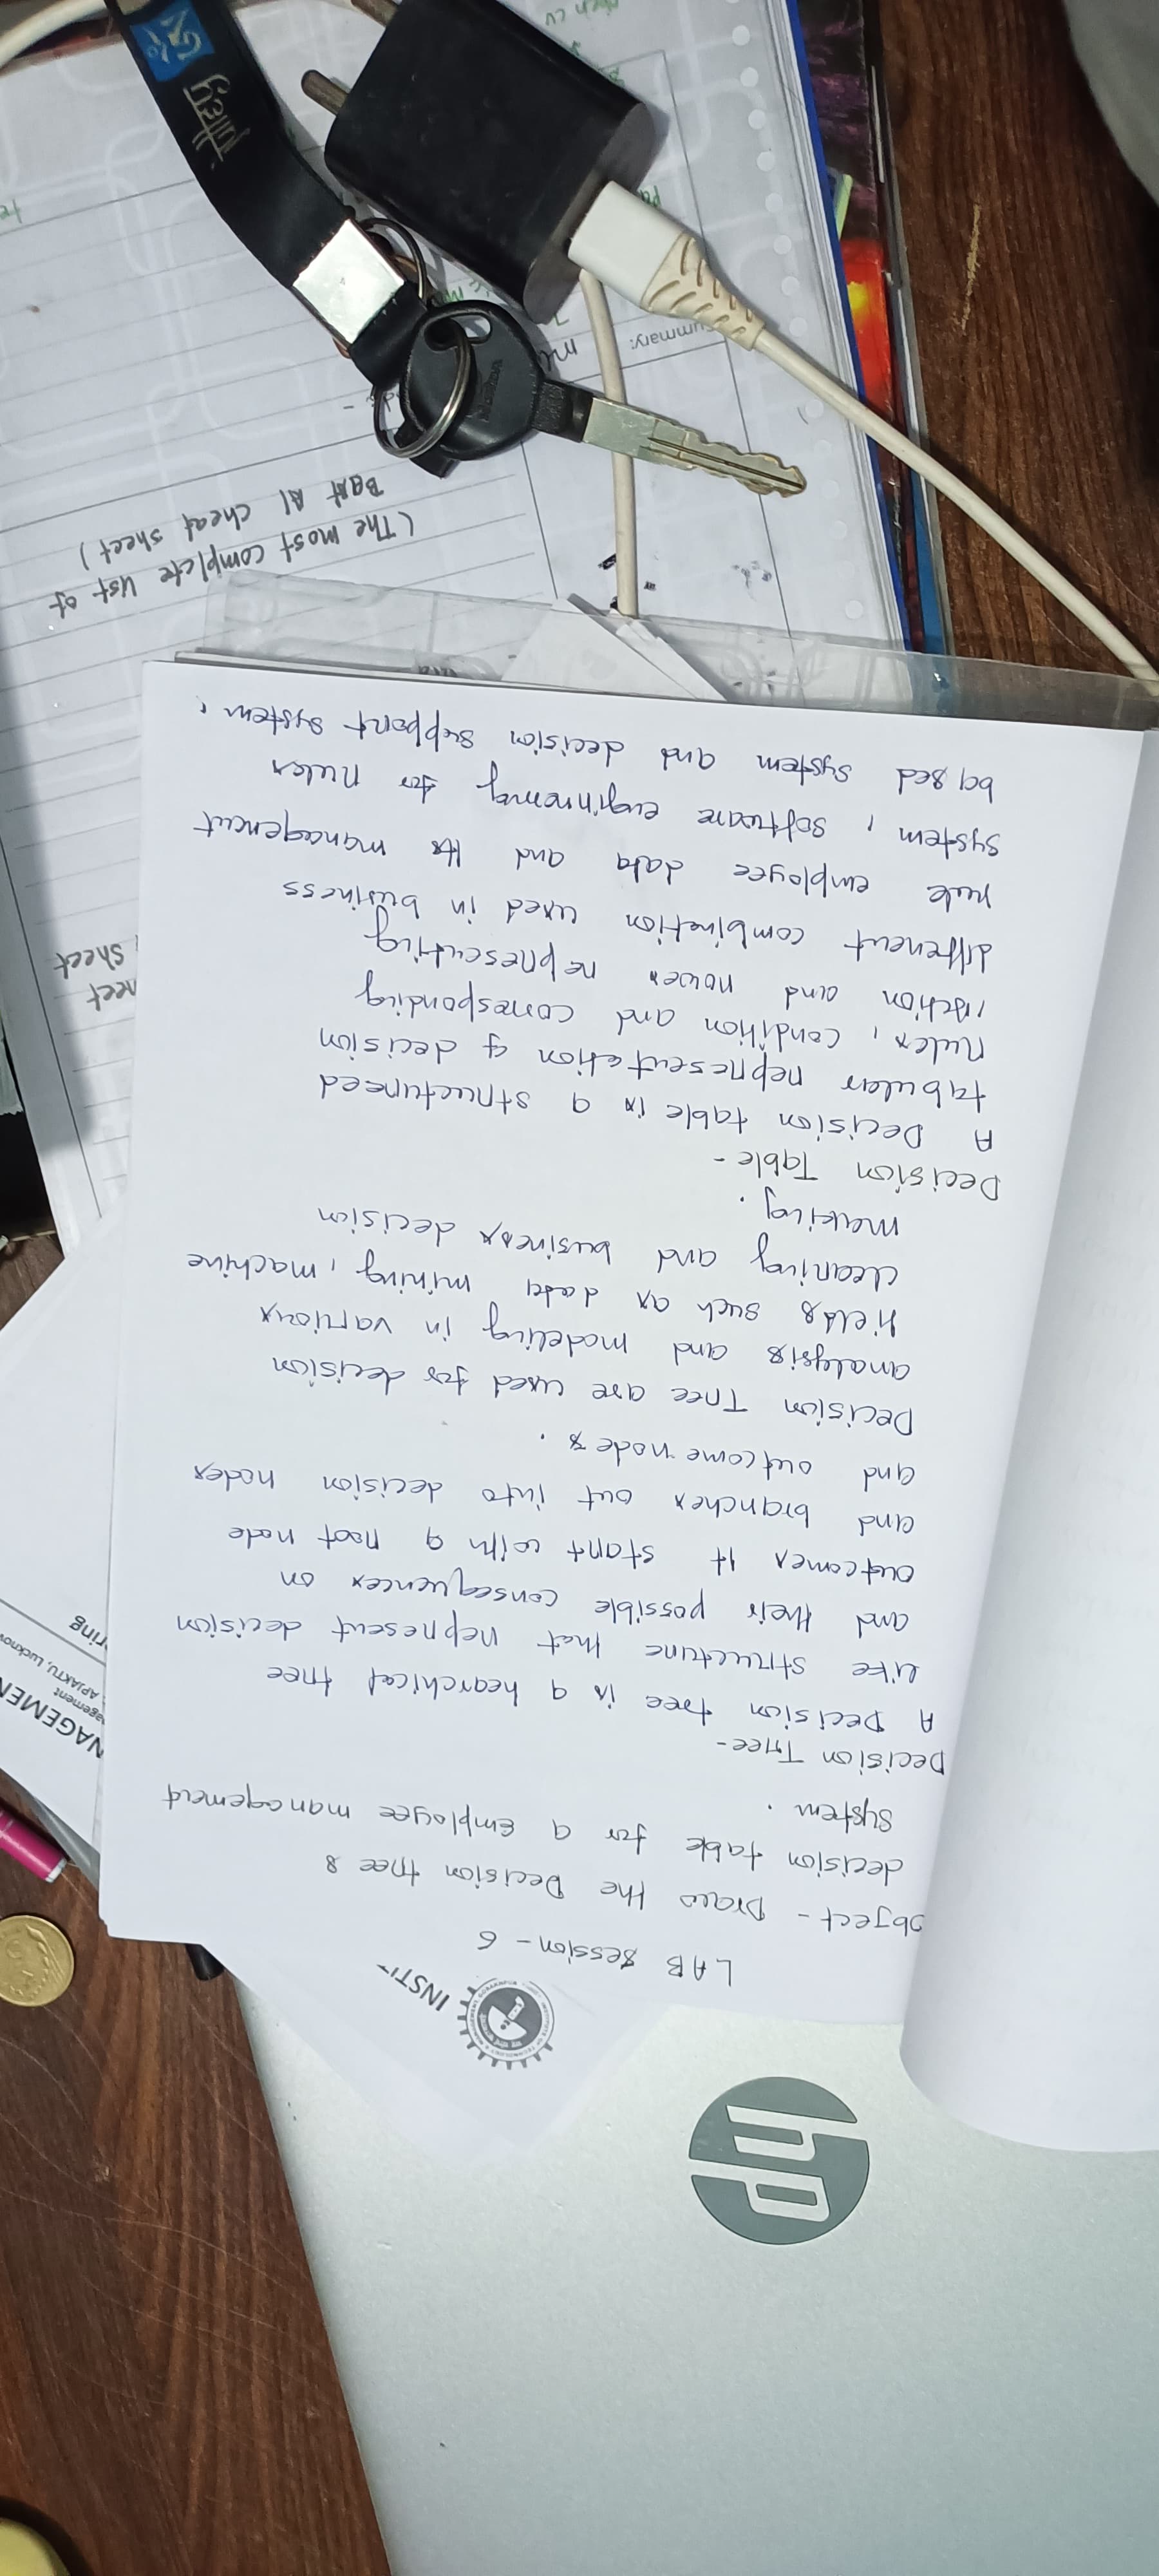 LAB Session - 6
Object - Draw the Decision tree &
decision table for a Employee management
System.
Decision Tree -
A Decision tree is a hearchical tree
like structure that represent decision
and their possible consequences on
outcomes it start with a root node
and branches out into decision nodes
and outcome nodes.
Decision Tree are used for decision
analysis and modeling in various
fields such as data mining, machine
cleaning and business decision
making.
Decision Table -
A Decision table is a structured
tabular representation of decision
rules, condition and corresponding
Action and representing
different combination used in business
rule employee data and management
system, software enginnering for rules
based system and decision support system.
(The most complete list of
Best AI cheat sheet)
Sheet
Summary:
INSTI
NAGEMEN
agement
APJAKTU, Lucknow
ring
hp